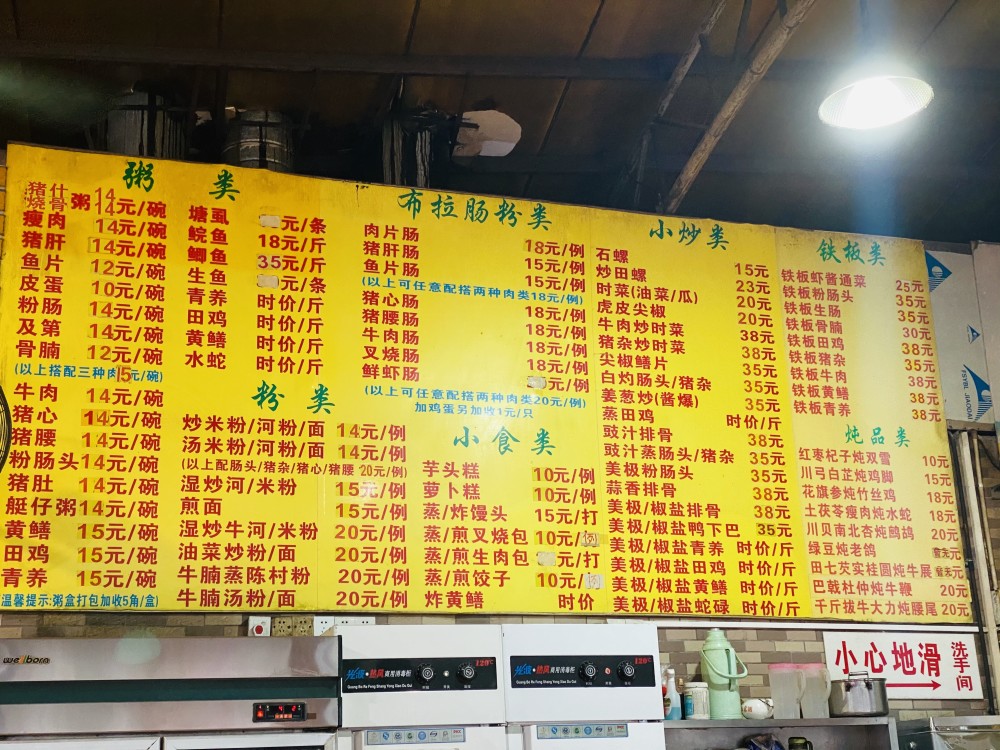 粥 类
猪什
烧骨粥 14
14元/碗
瘦肉 14元/碗
猪肝 14元/碗
鱼片 12元/碗
皮蛋 10元/碗
粉肠 14元/碗
及第 14元/碗
骨腩 12元/碗
(以上搭配三种肉15元/碗)
牛肉 14元/碗
猪心 14元/碗
猪腰 14元/碗
粉肠头14元/碗
猪肚 14元/碗
艇仔粥14元/碗
黄鳝 15元/碗
田鸡 15元/碗
青养 15元/碗
温馨提示:粥盒打包加收5角/盒)
塘虱 元/条
鲩鱼 18元/斤
鲫鱼 35元/斤
生鱼 元/条
青养 时价/斤
田鸡 时价/斤
黄鳝 时价/斤
水蛇 时价/斤
粉 类
炒米粉/河粉/面 14元/例
汤米粉/河粉/面 14元/例
(以上配肠头/猪杂/猪心/猪腰 20元/例)
湿炒河/米粉 15元/例
煎面 15元/例
湿炒牛河/米粉 20元/例
油菜炒粉/面 20元/例
牛腩蒸陈村粉 20元/例
牛腩汤粉/面 20元/例
布拉肠粉类
肉片肠 18元/例
猪肝肠 15元/例
鱼片肠 15元/例
(以上可任意配搭两种肉类18元/例)
猪心肠 18元/例
猪腰肠 18元/例
牛肉肠 18元/例
叉烧肠 18元/例
鲜虾肠 元/例
(以上可任意配搭两种肉类20元/例)
加鸡蛋另加收1元/只
小食类
芋头糕 10元/例
萝卜糕 10元/例
蒸/炸馒头 15元/打
蒸/煎叉烧包 10元/例
蒸/煎生肉包 元/打
蒸/煎饺子 10元/例
炸黄鳝 时价
小炒类
石螺 15元
炒田螺 23元
时菜(油菜/瓜) 20元
虎皮尖椒 20元
牛肉炒时菜 38元
猪杂炒时菜 38元
尖椒鳝片 35元
白灼肠头/猪杂 35元
姜葱炒(酱爆) 35元
蒸田鸡 时价/斤
豉汁排骨 38元
豉汁蒸肠头/猪杂 35元
美极粉肠头 35元
蒜香排骨 38元
美极/椒盐排骨 38元
美极/椒盐鸭下巴 35元
美极/椒盐青养 时价/斤
美极/椒盐田鸡 时价/斤
美极/椒盐黄鳝 时价/斤
美极/椒盐蛇碌 时价/斤
铁板类
铁板虾酱通菜 25元
铁板粉肠头 35元
铁板生肠 35元
铁板骨腩 30元
铁板田鸡 38元
铁板猪杂 35元
铁板牛肉 38元
铁板黄鳝 38元
铁板青养 38元
炖品类
红枣杞子炖双雪 10元
川弓白芷炖鸡脚 15元
花旗参炖竹丝鸡 18元
土茯苓瘦肉炖水蛇 18元
川贝南北杏炖鹧鸪 20元
绿豆炖老鸽
田七芡实桂圆炖牛展
巴戟杜仲炖牛鞭 20元
千斤拔牛大力炖腰尾 20元
小心地滑
洗手间
wellborn
商用消毒柜
商用消毒柜